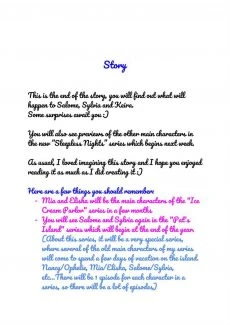 Story
This is the end of the story, you will find out what will
happen to Salome, Sylvia and Keira.
Some surprises await you :)
You will also see previews of the other main characters in
the new "Sleepless Nights" series which begins next week.
As usual, I loved imagining this story and I hope you enjoyed
reading it as much as I did creating it :)
Here are a few things you should remember:
- Mia and Elisha will be the main characters of the "Ice
Cream Parlor" series in a few months
- You will see Salome and Sylvia again in the "Pet's
Island" series which will begin at the end of the year.
(About this series, it will be a very special series,
where several of the main characters of my series
will come to spend a few days of vacation on the island
Nancy/Ophelie, Mia/Elisha, Salome/Sylvia,
etc...There will be 1 episode for each character in a
series, so there will be a lot of episodes)